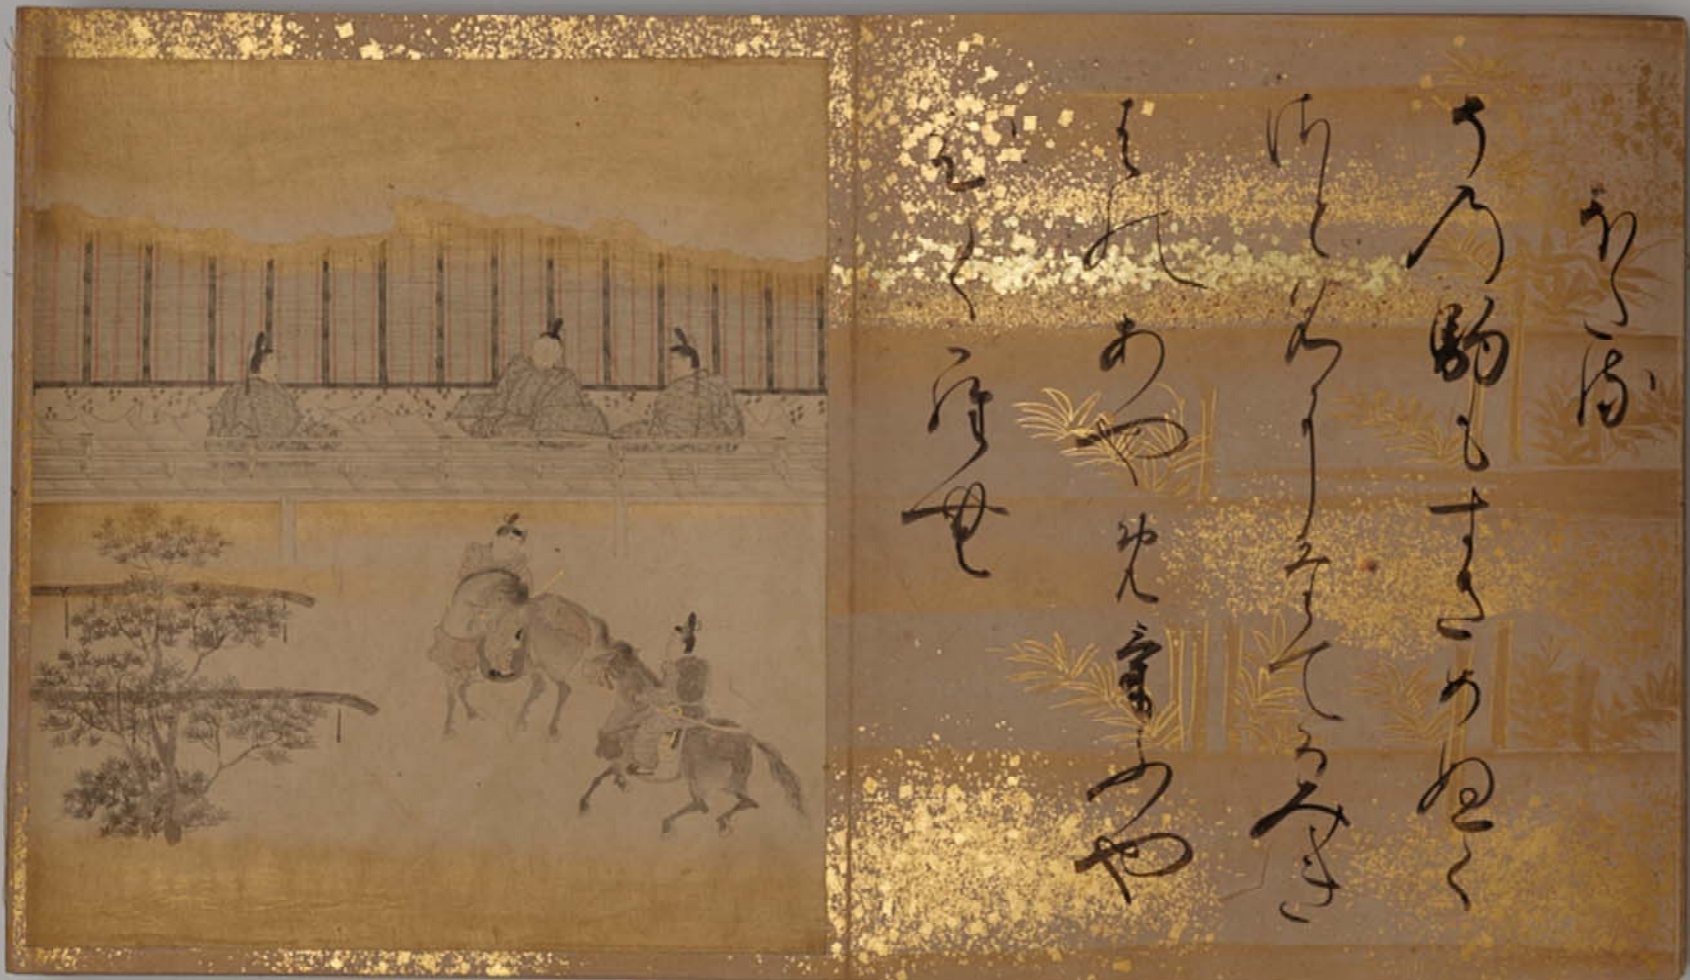 ほたる
その駒もすさめぬく
さとなにたてるみき
はのあやめけふや